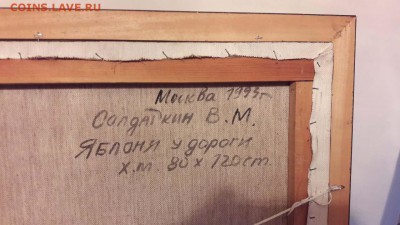 COINS.LAVE.RU
Москва 1993г
Солдаткин В.М.
Яблони у дороги
х.м. 80 х 120 ст.